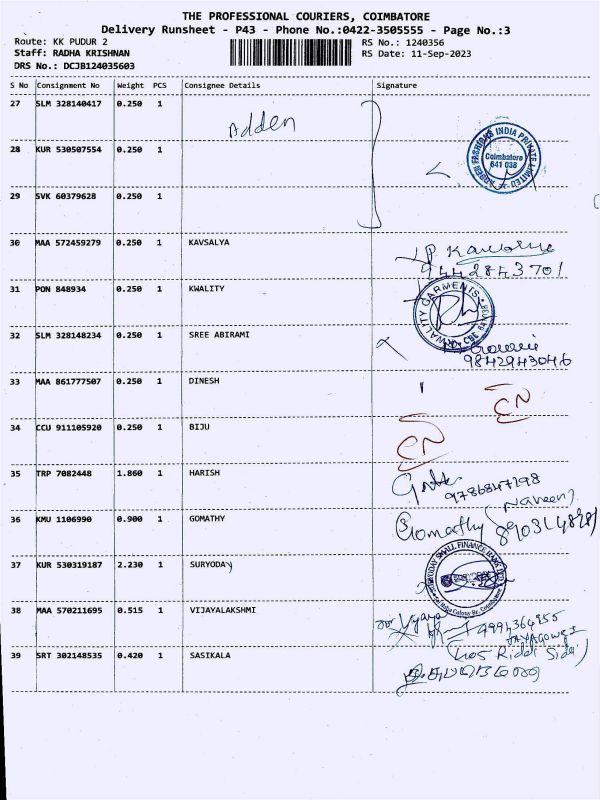 THE PROFESSIONAL COURIERS, COIMBATORE
Delivery Runsheet - P43 - Phone No.:0422-3505555 - Page No.:3
Route: KK PUDUR 2 RS No.: 1240356
Staff: RADHA KRISHNAN RS Date: 11-Sep-2023
DRS No.: DCJB124035603
S No Consignment No Weight PCS Consignee Details Signature
27 SLM 328140417 0.250 1 Adden
28 KUR 530507554 0.250 1
FASHIONS INDIA PRIVATE LIMITED
Coimbatore
641 038
29 SVK 60379628 0.250 1
30 MAA 572459279 0.250 1 KAVSALYA
9442843701
31 PON 848934 0.250 1 KWALITY
KWALITY GARMENTS
32 SLM 328148234 0.250 1 SREE ABIRAMI
9842943046
33 MAA 861777507 0.250 1 DINESH
CN
34 CCU 911105920 0.250 1 BIJU
CN
35 TRP 7082448 1.860 1 HARISH
9786847198
(Naveen)
36 KMU 1106990 0.900 1 GOMATHY
Gomathy
37 KUR 530319187 2.230 1 SURYODAY
SMALL FINANCE BANK
38 MAA 570211695 0.515 1 VIJAYALAKSHMI
Vijaya
9994364955
39 SRT 302148535 0.420 1 SASIKALA